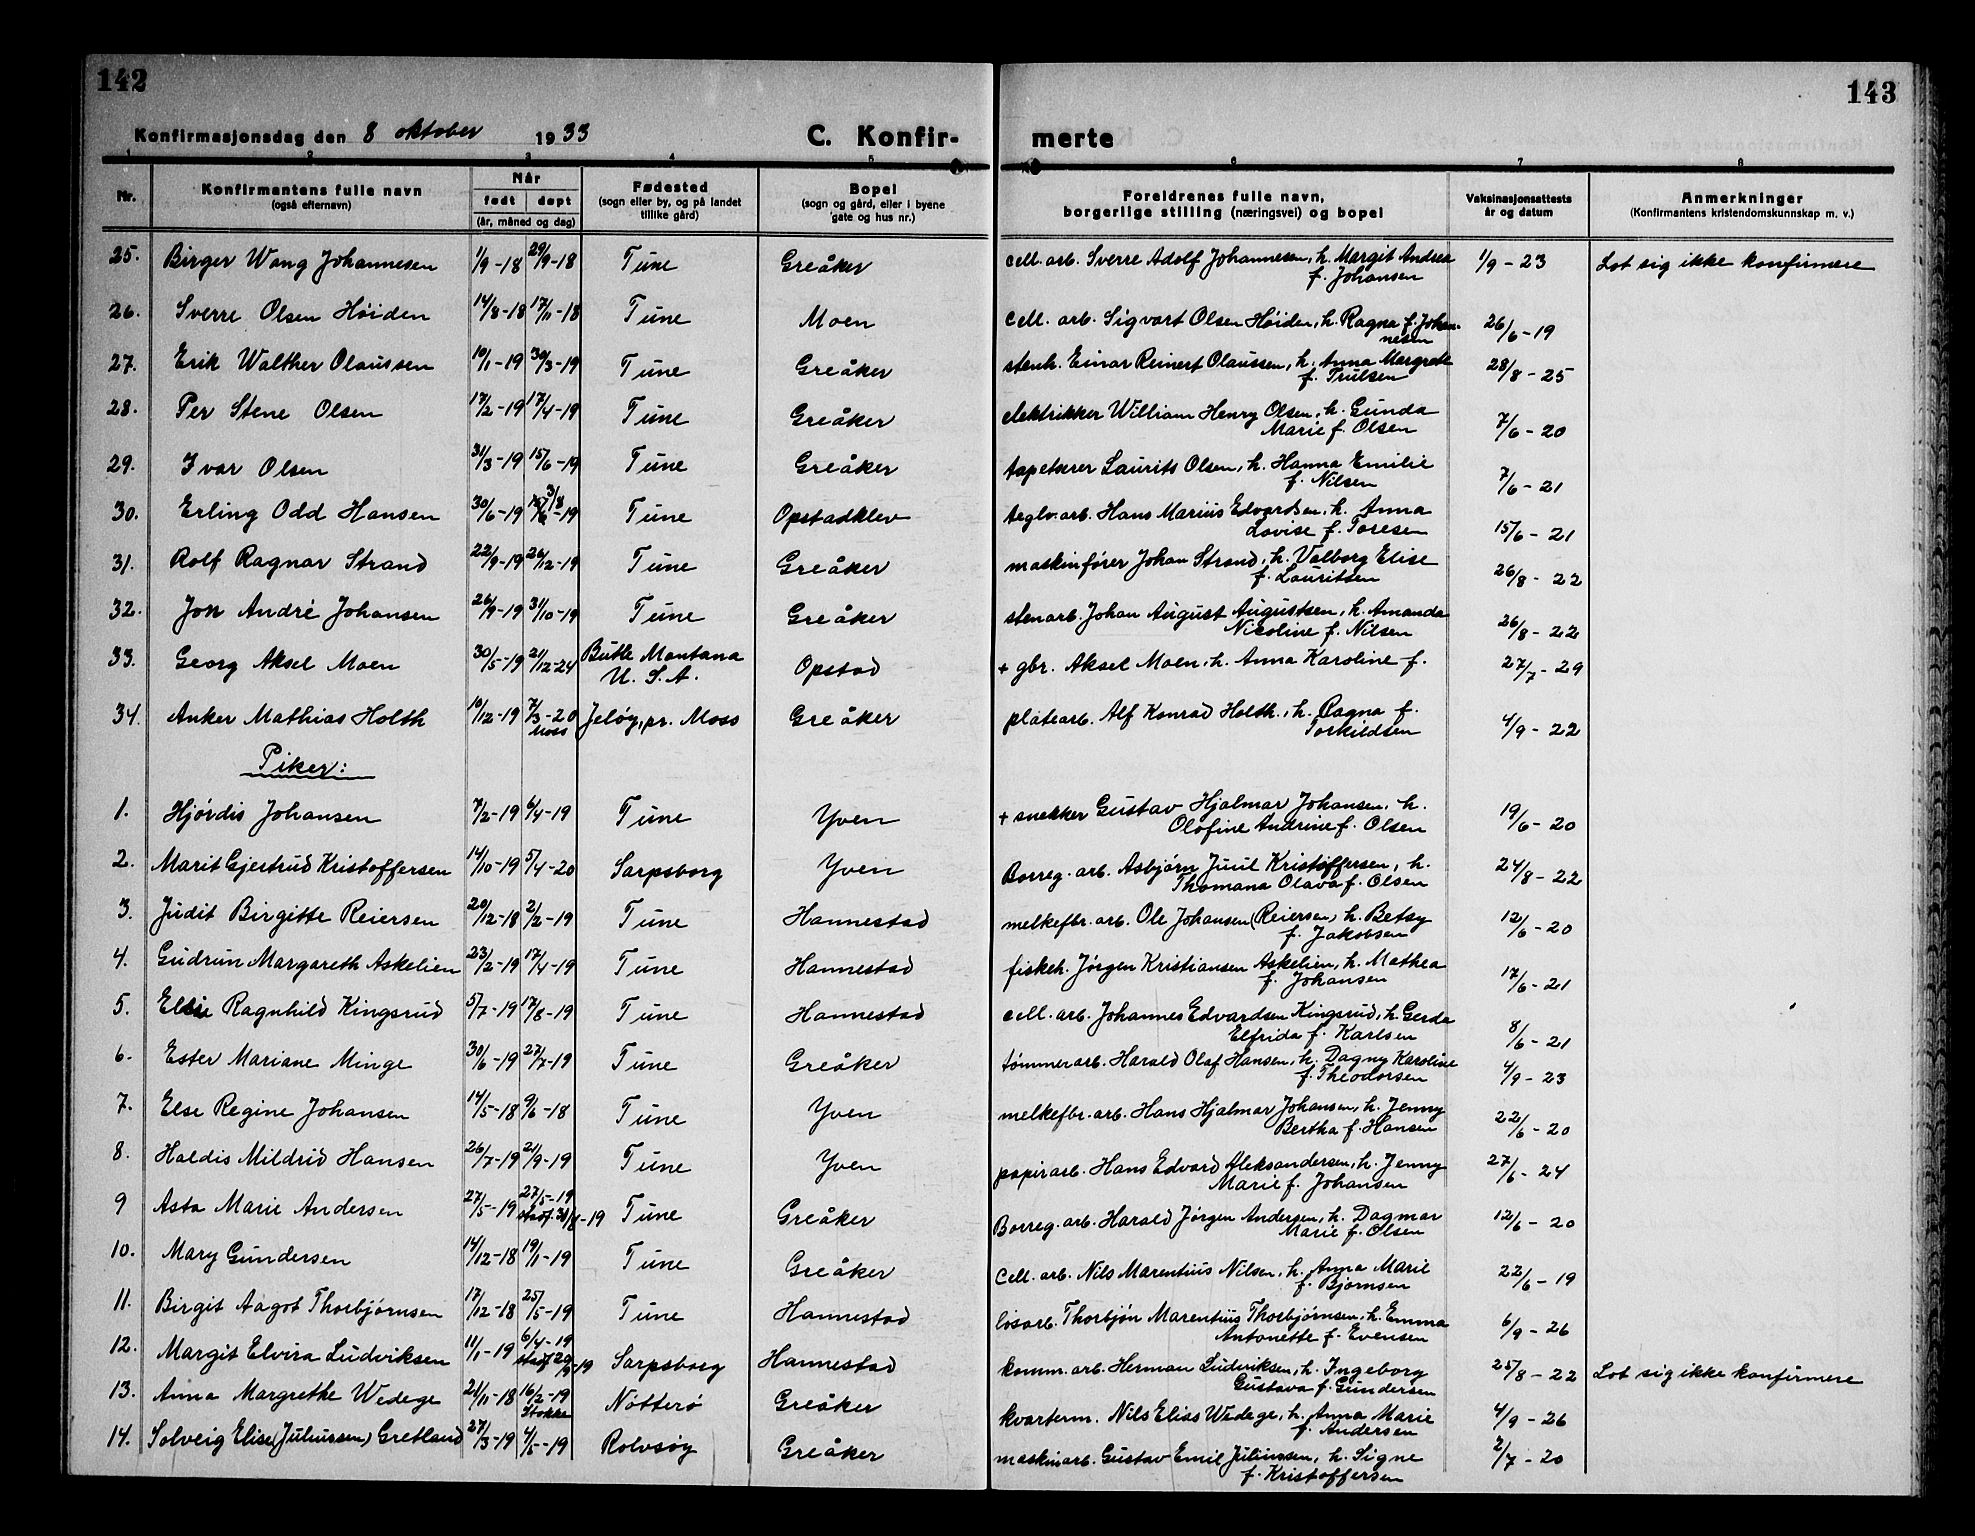 142
143
Konfirmasjonsdag den 8 oktober 1933
C. Konfir-
merte
1 2 3 4 5 6 7 8
Nr.
Konfirmantens fulle navn
(også efternavn)
Når
født
døpt
(år, måned og dag)
Fødested
(sogn eller by, og på landet
tillike gård)
Bopel
(sogn og gård, eller i byene
gate og hus nr.)
Foreldrenes fulle navn,
borgerlige stilling (næringsvei) og bopel
Vaksinasjonsattests
år og datum
Anmerkninger
(Konfirmantens kristendomskunnskap m. v.)
25. Birger Wang Johannesen 1/9-18 29/9-18 Tune Greåker cell. arb. Sverre Adolf Johannesen, h. Margit Andrea 1/9-23 Lot sig ikke konfirmere
f. Johansen
26. Sverre Olsen Höiden 14/8-18 17/11-18 Tune Moen cell. arb. Sigvart Olsen Höiden, h. Ragna f. Johan- 26/6-19
nesen
27. Erik Walther Olaussen 10/1-19 30/3-19 Tune Greåker stenh. Einar Reinert Olaussen, h. Anna Margrete 28/8-25
f. Trulsen
28. Per Stene Olsen 17/2-19 17/4-19 Tune Greåker elektrikker William Henry Olsen, h. Gunda 7/6-20
Marie f. Olsen
29. Ivar Olsen 31/3-19 15/6-19 Tune Greåker tapetserer Laurits Olsen, h. Hanna Emilie 7/6-21
f. Nilsen
30. Erling Odd Hansen 30/6-19 3/8-19 Tune Opstadklev teglv. arb. Hans Marius Edvardsen, h. Anna 15/6-21
Lovise f. Toresen
31. Rolf Ragnar Strand 22/9-19 26/12-19 Tune Greåker maskinfører Johan Strand, h. Valborg Elise 26/8-22
f. Lauritsen
32. Jon André Johansen 26/9-19 31/10-19 Tune Greåker stenarb. Johan August Augustsen, h. Amanda 26/8-22
Nicoline f. Nilsen
33. Georg Aksel Moen 30/5-19 21/12-24 Butte Montana Opstad + gbr. Aksel Moen, h. Anna Karoline f. 27/7-29
U. S. A.
34. Anker Mathias Holth 10/12-19 7/3-20 Jeløy, pr. Moss Greåker platearb. Alf Konrad Holth, h. Ragna f. 4/9-22
Moss Torkildsen
Piker:
1. Hjördis Johansen 7/2-19 6/4-19 Tune Yven + snekker Gustav Hjalmar Johansen, h. 19/6-20
Olofine Andrine f. Olsen
2. Marit Gjertrud Kristoffersen 14/10-19 5/4-20 Sarpsborg Yven Borreg. arb. Asbjørn Juul Kristoffersen, h. 24/8-22
Thomana Olava f. Olsen
3. Judit Birgitte Reiersen 20/12-18 2/2-19 Tune Hannestad melkefbr. arb. Ole Johansen (Reiersen) h. Betsy 12/6-20
f. Jakobsen
4. Gudrun Margareth Askelien 23/2-19 17/4-19 Tune Hannestad fiskeh. Jørgen Kristiansen Askelien, h. Mathea 17/6-21
f. Johansen
5. Elsie Ragnhild Kingsrud 5/7-19 17/8-19 Tune Hannestad cell. arb. Johannes Edvardsen Kingsrud, h. Gerda 8/6-21
Elfrida f. Karlsen
6. Ester Mariane Minge 30/6-19 27/7-19 Tune Greåker tømmerarb. Harald Olaf Hansen, h. Dagny Karoline 4/9-23
f. Theodorsen
7. Else Regine Johansen 14/5-18 9/6-18 Tune Yven melkefbr. arb. Hans Hjalmar Johansen, h. Jenny 22/6-20
Bertha f. Hansen
8. Haldis Mildrid Hansen 26/7-19 21/9-19 Tune Yven papirarb. Hans Edvard Aleksandersen, h. Jenny 27/6-24
Marie f. Johansen
9 Asta Marie Andersen 27/5-19 27/5-19 Tune Greåker Borreg. arb. Harald Jørgen Andersen, h. Dagmar 12/6-20
Marie f. Olsen
10. Mary Gundersen 14/12-18 19/1-19 Tune Greåker Cell. arb. Nils Marentius Nilsen, h. Anna Marie 22/6-19
f. Bjørnsen
11. Birgit Aagot Thorbjørnsen 17/12-18 25/5-19 Tune Hannestad løsarb. Thorbjøn Marentius Thorbjørnsen, h. Emma 6/9-26
Antonette f. Evensen
12. Margit Elvira Ludviksen 11/1-19 6/4-19 Sarpsborg Hannestad komm. arb. Herman Ludviksen, h. Ingeborg 25/8-22 Lot sig ikke konfirmere
Gustava f. Gundersen
13. Anna Margrethe Wedege 21/11-18 16/2-19 Nötterö Greåker kvarterm. Nils Elias Wedege, h. Anna Marie 4/9-26
Stokke f. Andersen
14. Solveig Elise (Juliussen) Gretland 27/3-19 4/5-19 Rolvsøy Greåker maskinarb. Gustav Emil Juliussen, h. Signe 2/7-20
f. Kristoffersen